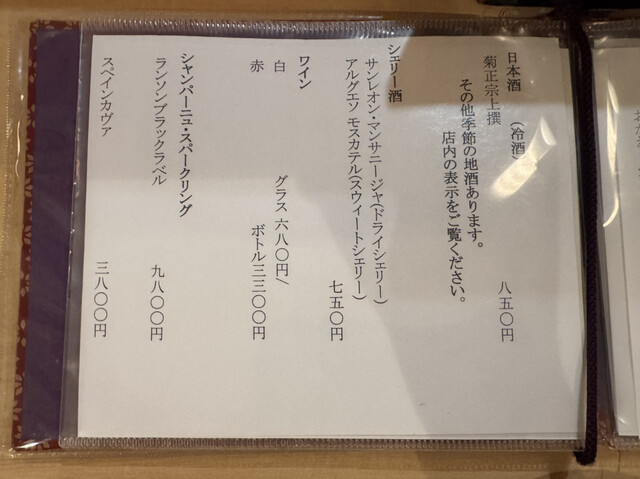 日本酒 （冷酒）
菊正宗上撰 八五〇円
その他季節の地酒あります。
店内の表示をご覧ください。
シェリー酒
サンレオン・マンサニージャ(ドライシェリー)
アルグエソ モスカテル(スウィートシェリー)
七五〇円
ワイン
白 グラス 六八〇円/
赤 ボトル三三〇〇円
シャンパーニュ・スパークリング
ランソンブラックラベル 九八〇〇円
スペインカヴァ 三八〇〇円